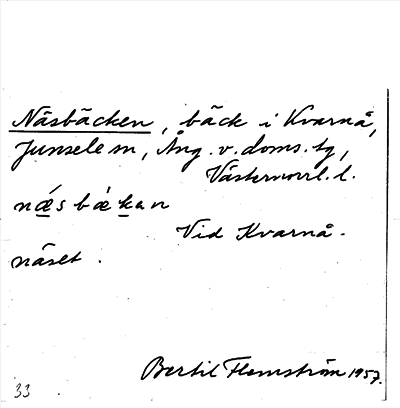 Näsbäcken, bäck i Kvarnå,
Junsele sn, Ång. v. doms. tg,
Västernorrl. l.
nǽsbækan
Vid Kvarnå-
näset.
Bertil Flemström 1957.
33